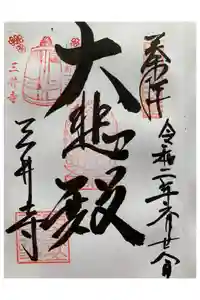 奉拝
令和二年六月廿八日
大悲殿
三井寺
三井寺